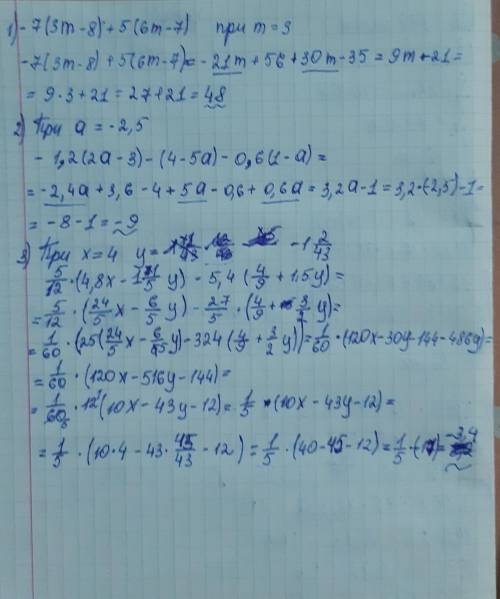 1) -7(3m-8)+5(6m-7) при m=3
-7(3m-8)+5(6m-7)=-21m+56+30m-35=9m+21=
=9·3+21=27+21=48
2) При a=-2,5
-1,2(2a-3)-(4-5a)-0,6(1-a)=
=-2,4a+3,6-4+5a-0,6+0,6a=3,2a-1=3,2·(-2,5)-1=
=-8-1=-9
3) При x=4 y= -1 2/43
5/12·(4,8x- y)-5,4(4/9+1,5y)=
=5/12·(24/5x-6/5y)-27/5·(4/9+3/2y)=
=1/60·(25(24/5x-6/5y)-324(4/9+3/2y))=1/60·(120x-30y-144-486y)=
=1/60·(120x-516y-144)=
=1/60·12(10x-43y-12)=1/5·(10x-43y-12)=
=1/5·(10·4-43·45/43-12)=1/5·(40-45-12)=1/5·(-17)=-3,4